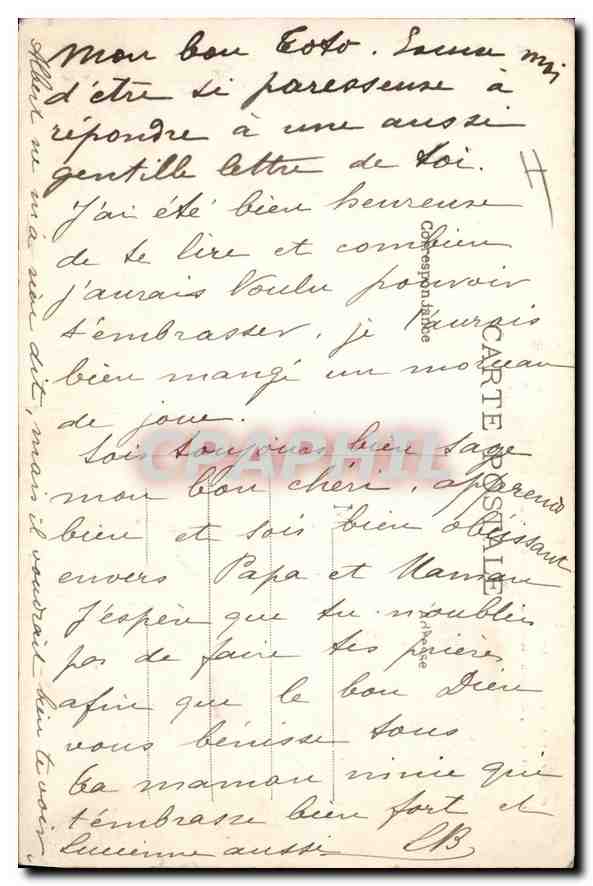 Mon bon Toto. Excuse moi
d'être si paresseuse à
répondre à une aussi
gentille lettre de toi.
J'ai été bien heureuse
de te lire et combien
j'aurais voulu pouvoir
t'embrasser, je t'aurais
bien mangé un morceau
de joue.
Sois toujours bien sage
mon bon chéri, apprends
bien et sois bien obéissant
envers Papa et Maman
J'espère que tu n'oublies
pas de faire tes prières
afin que le bon Dieu
vous bénisse tous
ta maman ninie qui
t'embrasse bien fort et
Lucienne aussi LB
Albert ne m'a rien dit, mais il voudrait bien te voir.
Correspondance
CARTE POSTALE
Adresse
CPAPHIL